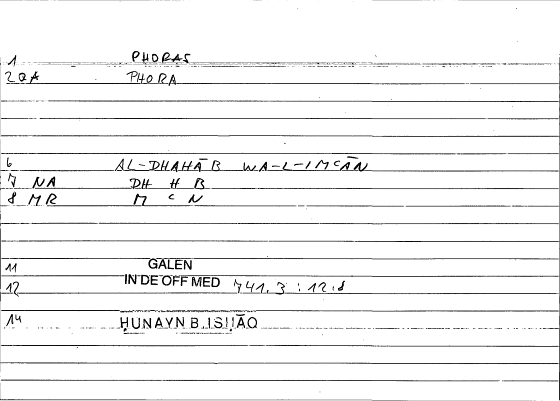 1 PHORAS
2 QA PHORA
6 AL-DHAHĀB WA-L-IMcĀN
7 NA DH H B
8 MR M c N
11 GALEN
12 IN DE OFF MED 741.3 : 12.8
14 ḤUNAYN B. ISḤĀQ